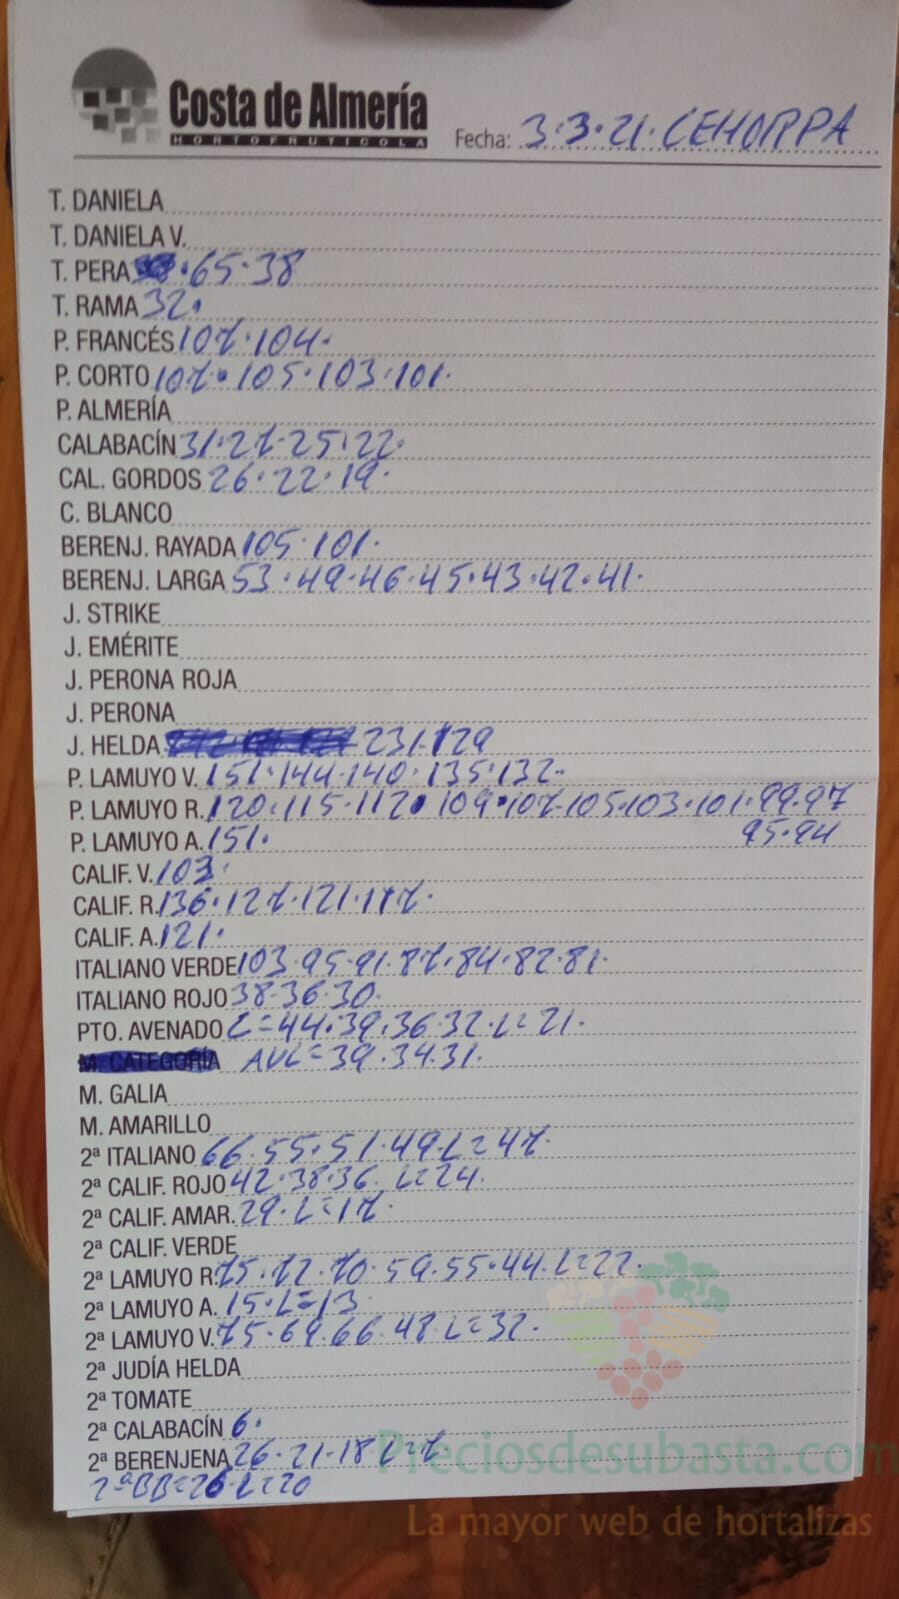 Costa de Almería
HORTOFRUTICOLA
Fecha: 3.3.21. CEHORPA
T. DANIELA
T. DANIELA V.
T. PERA . 65. 38
T. RAMA 32.
P. FRANCÉS 107. 104.
P. CORTO 107. 105. 103. 101.
P. ALMERÍA
CALABACÍN 31. 27. 25. 22.
CAL. GORDOS 26. 22. 19.
C. BLANCO
BERENJ. RAYADA 105. 101.
BERENJ. LARGA 53. 49. 46. 45. 43. 42. 41.
J. STRIKE
J. EMÉRITE
J. PERONA ROJA
J. PERONA
J. HELDA 231.
P. LAMUYO V. 151. 144. 140. 135. 132.
P. LAMUYO R. 120. 115. 112. 109. 107. 105. 103. 101. 99. 97
95. 94
P. LAMUYO A. 151.
CALIF. V. 103.
CALIF. R. 136. 127. 121. 117.
CALIF. A. 121.
ITALIANO VERDE 103. 95. 91. 87. 84. 82. 81.
ITALIANO ROJO 38. 36. 30.
PTO. AVENADO C=44. 39. 36. 32. L=21.
M. CATEGORÍA AVL=39. 34. 31.
M. GALIA
M. AMARILLO
2ª ITALIANO 66. 55. 51. 49. L=47.
2ª CALIF. ROJO 42. 38. 36. L=24.
2ª CALIF. AMAR. 29. L=17.
2ª CALIF. VERDE
2ª LAMUYO R. 75. 72. 70. 59. 55. 44. L=22.
2ª LAMUYO A. 15. L=13
2ª LAMUYO V. 75. 69. 66. 48. L=32.
2ª JUDÍA HELDA
2ª TOMATE
2ª CALABACÍN 6.
2ª BERENJENA 26. 21. 18 L=7
2ª BB=26. L=20
Preciosdesubasta.com
La mayor web de hortalizas